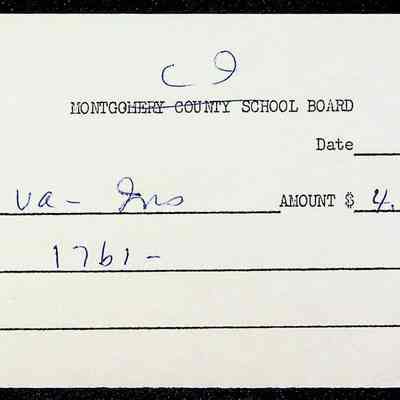 C I
MONTGOMERY COUNTY SCHOOL BOARD
Date
va- Ins AMOUNT $ 4.
1761-